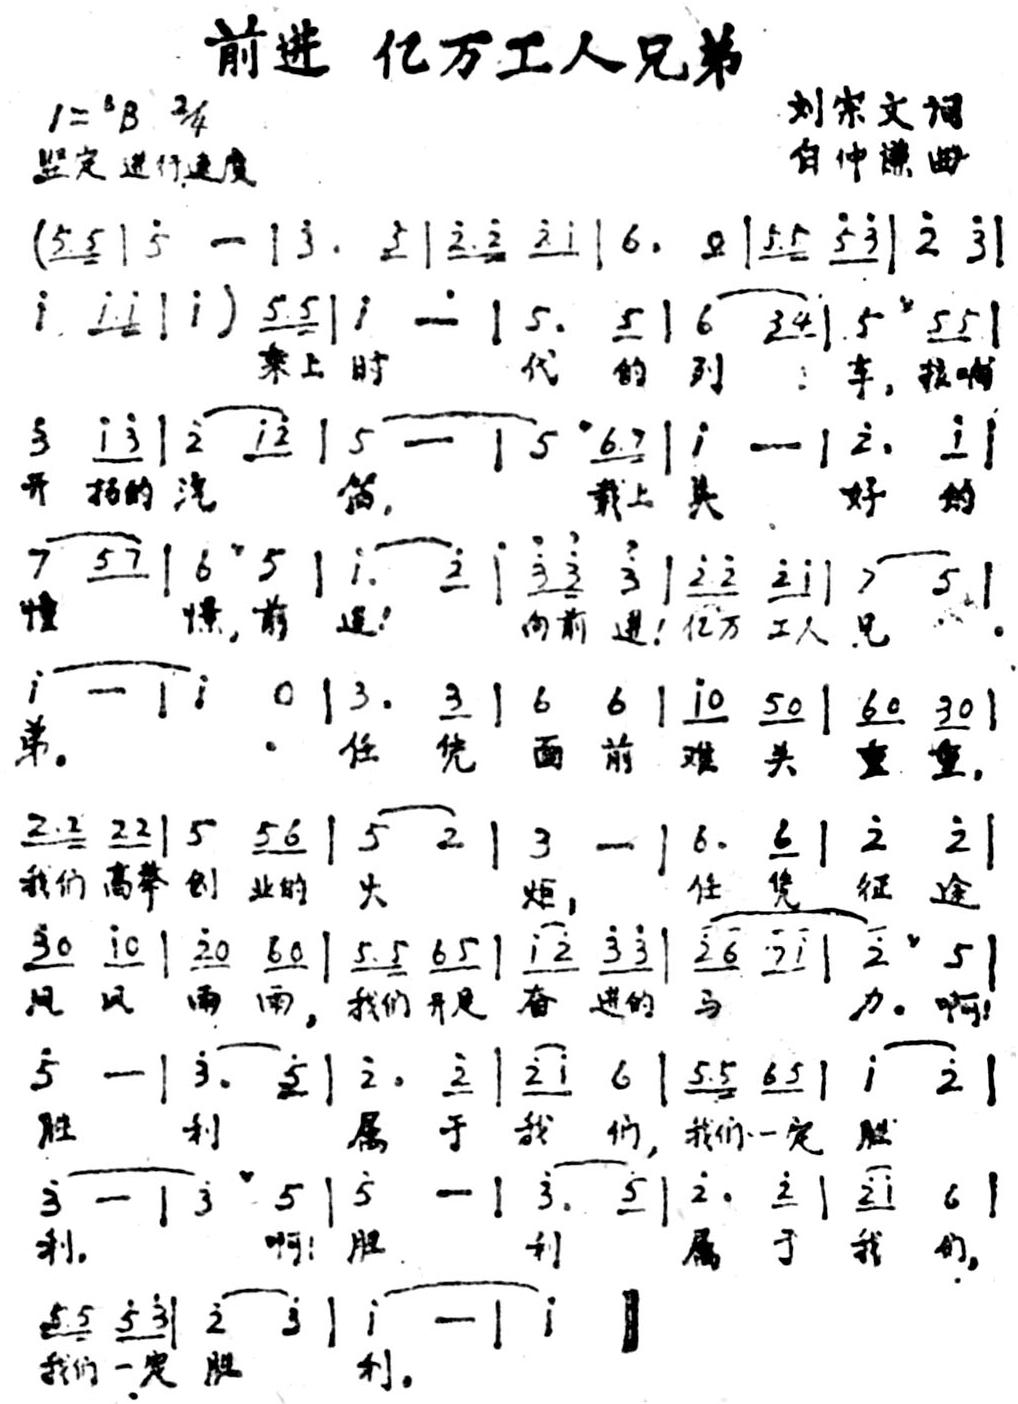 前进 亿万工人兄弟
1=♭B 2/4
刘宗文词
坚定 进行速度
白仲谦曲
(5.5 | 5 — | 3. 5 | 2.2 2i | 6. 0 | 5.5 53 | 2 3 |
i i.i | i ) 5.5 | i — | 5. 5 | 6 34 | 5 ˅ 55 |
乘上时 代 的 列 车,
3 i3 | 2 i2 | 5 — | 5 ˅ 6.7 | i — | 2. i |
开 的 汽 笛, 载上 美 好 的
7 57 | 6 ˅ 5 | i. 2 | 33 3 | 22 2i | 7 5 |
憧 憬, 前 进! 向前 进! 亿万 工人 兄
i — | i 0 | 3. 3 | 6 6 | i0 50 | 60 30 |
弟。 任 凭 面 前 难 关 重 重,
2.2 22 | 5 56 | 5 2 | 3 — | 6. 6 | 2 2 |
我们 高举 创 业的 火 炬, 任 凭 征 途
30 i0 | 20 60 | 5.5 65 | i2 33 | 26 7i | 2 ˅ 5 |
风 风 雨 雨, 我们 开足 奋 进的 马 力。 啊!
5 — | 3. 5 | 2. 2 | 2i 6 | 5.5 65 | i 2 |
胜 利 属 于 我 们, 我们一定 胜
3 — | 3 ˅ 5 | 5 — | 3. 5 | 2. 2 | 2i 6 |
利。 啊! 胜 利 属 于 我 们,
5.5 53 | 2 3 | i — | i ‖
我们 一定 胜 利。